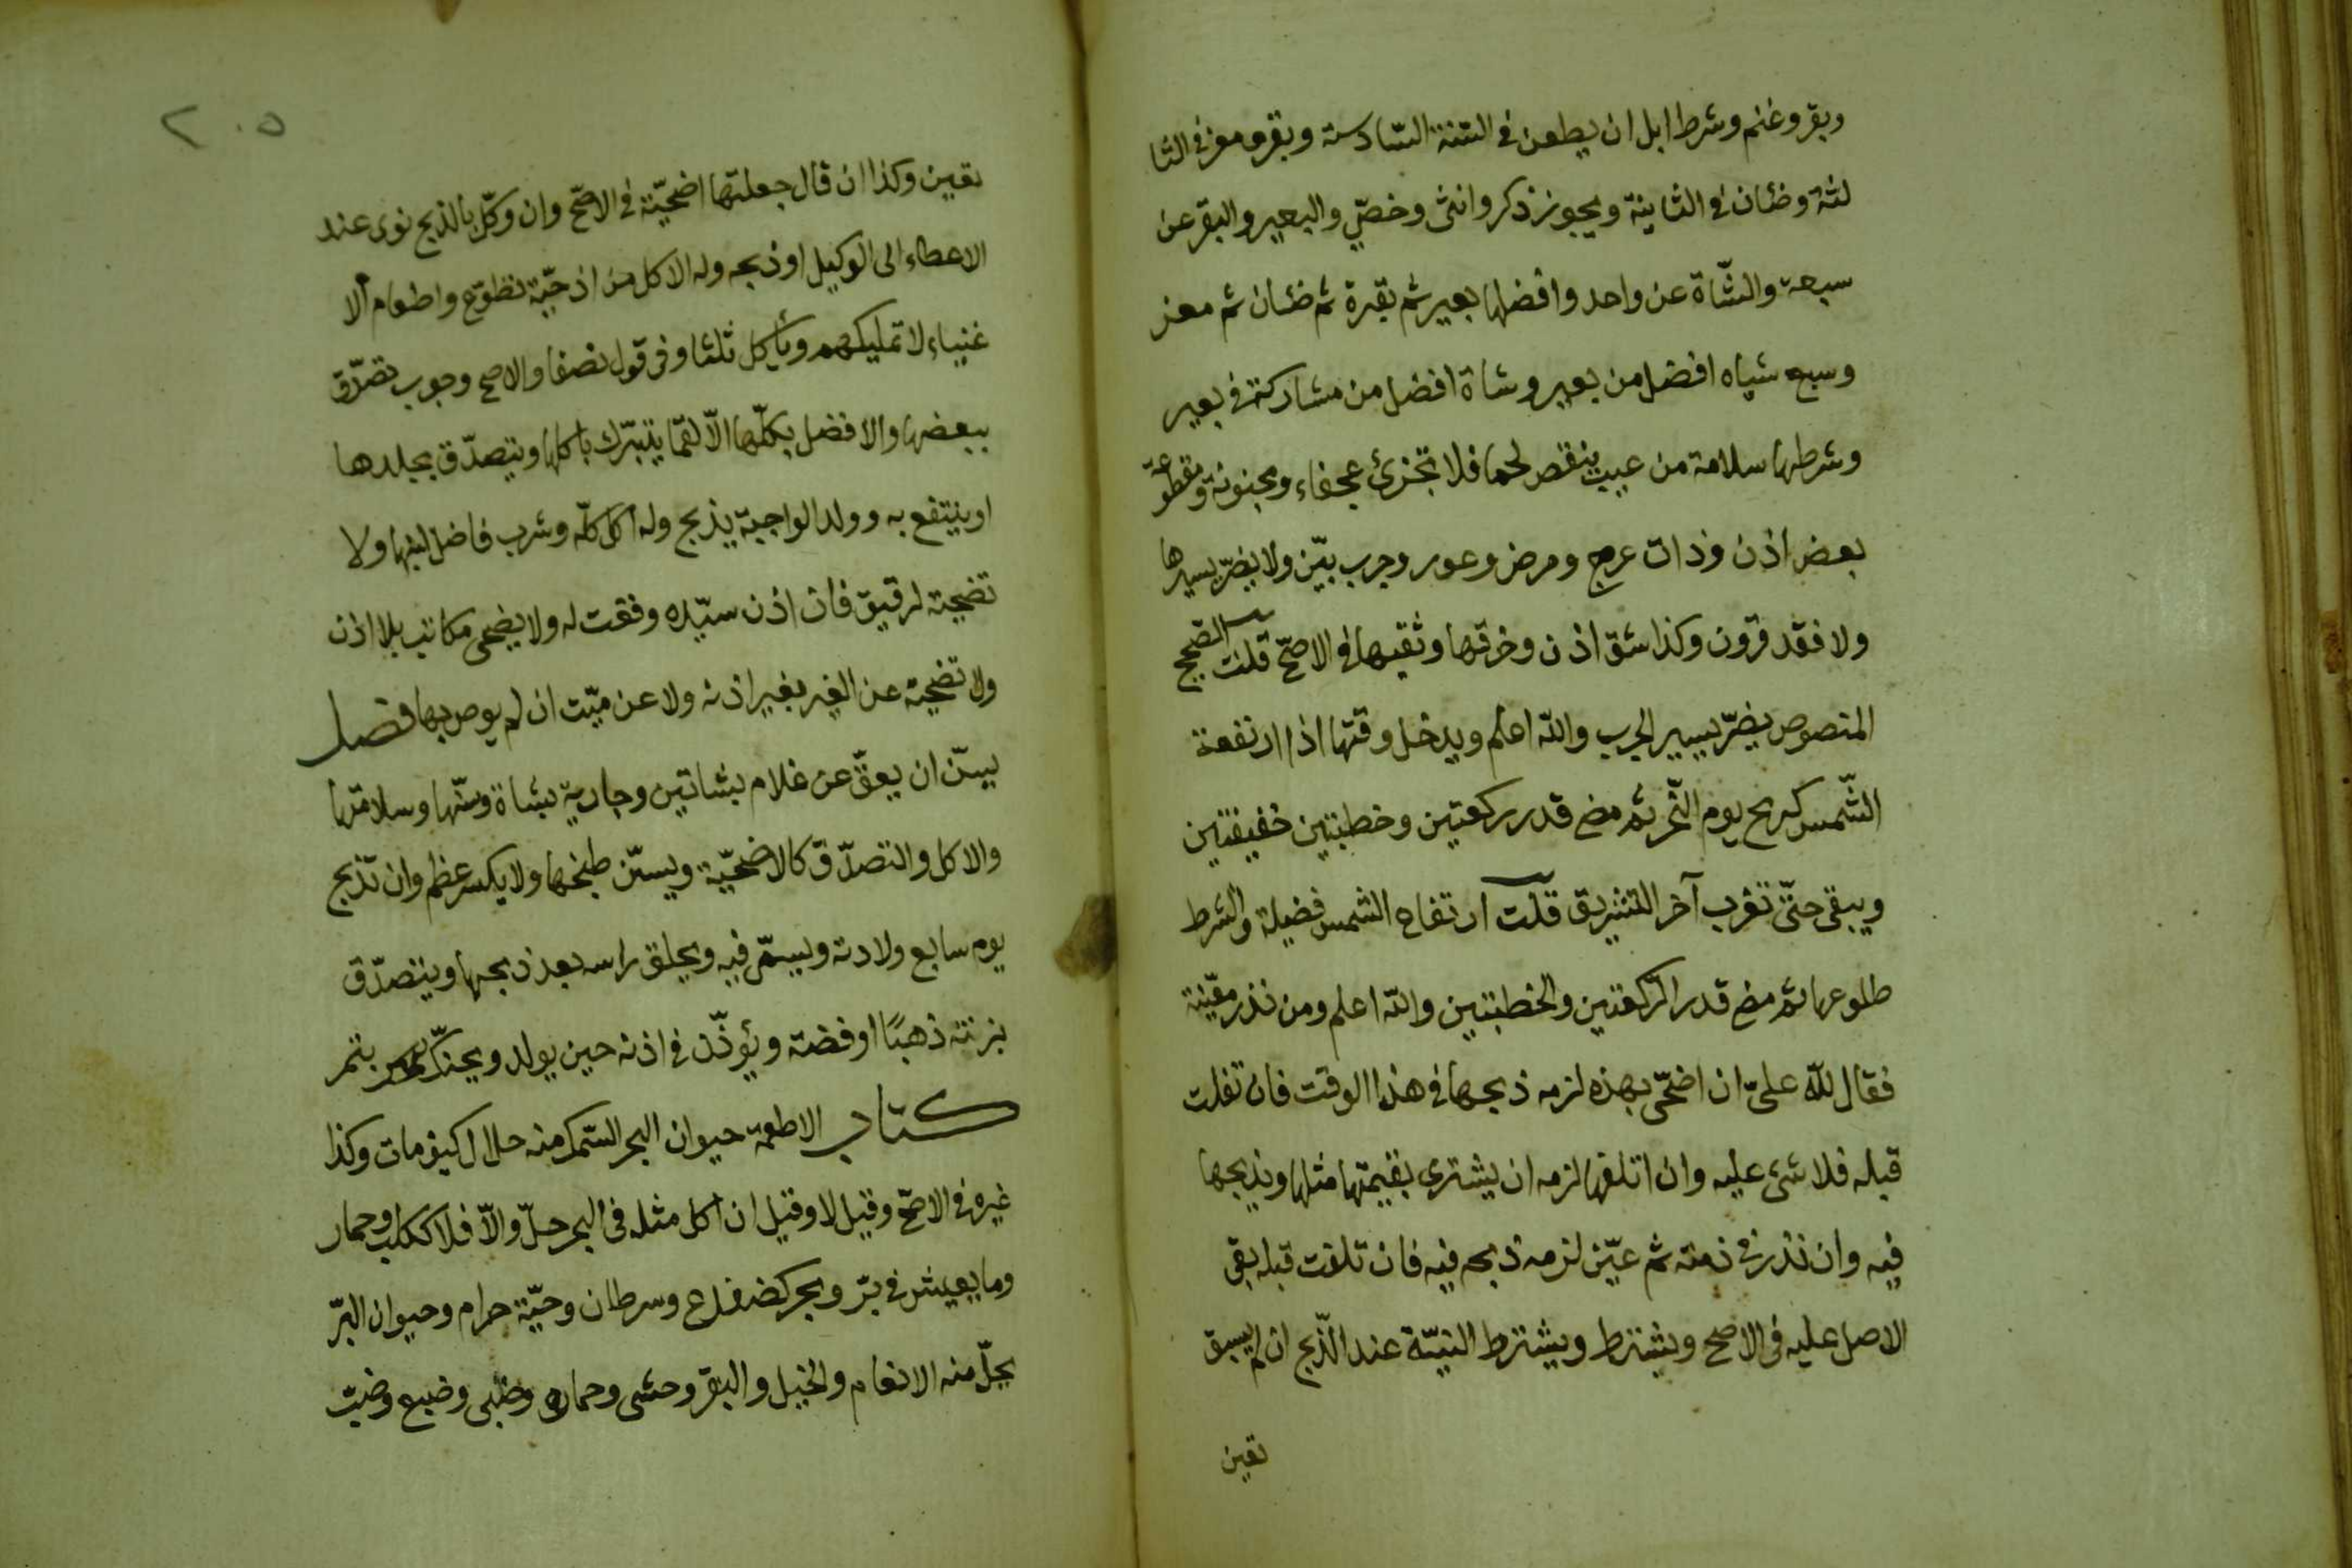 وبقر وغنم وشرط ابل ان يطعن في السّنة السّادسة وبقر ومعز في الثا
لثة وضئان في الثانية ويجوز ذكر وانثى وخصّي والبعير والبقر عن
سبعة والشّاة عن واحد وافضلها بعير ثم بقرة ثم ضئان ثم معز
وسبع شياه افضل من بعير وشاة افضل من مشاركة في بعير
وشرطها سلامة من عيب ينقص لحما فلا تجزئ عجفاء ومجنونة ومقطوعة
بعض اذن وذات عرج ومرض وعور وجرب بيّن ولا يضرّ يسيرها
ولا فقد قرون وكذا شق اذن وخرقها وثقبها في الاصحّ قلت الصّحيح
المنصوص يضرّ يسير الجرب والله اعلم ويدخل وقتها اذا ارتفعة
الشّمس كرمح يوم النّحر ثم مضى قدر ركعتين وخطبتين خفيفتين
ويبقى حتّى تغرب آخر التشريق قلت ارتفاع الشمس فضيلة والشرط
طلوعها ثم مضى قدر الرّكعتين والخطبتين والله اعلم ومن نذر معيّنة
فقال لله علىّ ان اضحّى بهذه لزمه ذبحها في هذا الوقت فان تفلت
قبله فلا شئ عليه وان اتلفها لزمه ان يشترى بقيمتها مثلها ويذبحها
فيه وان نذر في ذمته ثم عيّن لزمه ذبحه فيه فان تلفت قبله بقى
الاصل عليه في الاصح ويشترط ويشترط النيّة عند الذّبح ان لم يسبق
تعين
٢٠٥
تعين وكذا ان قال جعلتها اضحيّة في الاصحّ وان وكّل بالذبح نوى عند
الاعطاء الى الوكيل او ذبحه وله الاكل من اذحيّة تطوّع واطعام الا
غنياء لا تمليكهم ويأكل ثلثا وفى قول نصفا والاصح وجوب تصدّق
ببعضها والافضل بكلّها الّا لقمّا يتبرّك باكلها ويتصدّق بجلدها
او ينتفع به وولد الواجبة يذبح وله اكل كلّه وشرب فاضل لبنها ولا
تضحية لرقيق فان اذن سيّده وقعت له ولا يضحى مكاتب بلا اذن
ولا تضحية عن الغير بغير اذنه ولا عن ميّت ان لم يوص بها فصل
يسنّ ان يعقّ عن غلام بشاتين وجارية بشاة وسنّها وسلامتها
والاكل والتصدّق كالاضحيّة ويسنّ طبخها ولا يكسر عظم وان تذبح
يوم سابع ولادته ويسمّى فيه ويحلق راسه بعد ذبحها ويتصدّق
بزنته ذهبًا او فضة ويؤذّن في اذنه حين يولد ويحنّك بتمر
كتاب الاطعمة حيوان البحر السّمك منه حلال كيف مات وكذا
غيره في الاصحّ وقيل لا وقيل ان اكل مثله فى البر حلّ والّا فلا ككلب وحمار
وما يعيش في برّ وبحر كضفدع وسرطان وحيّة حرام وحيوان البرّ
يحلّ منه الانعام والخيل والبقر وحشى وحماره وظبى وضبع وضبّ